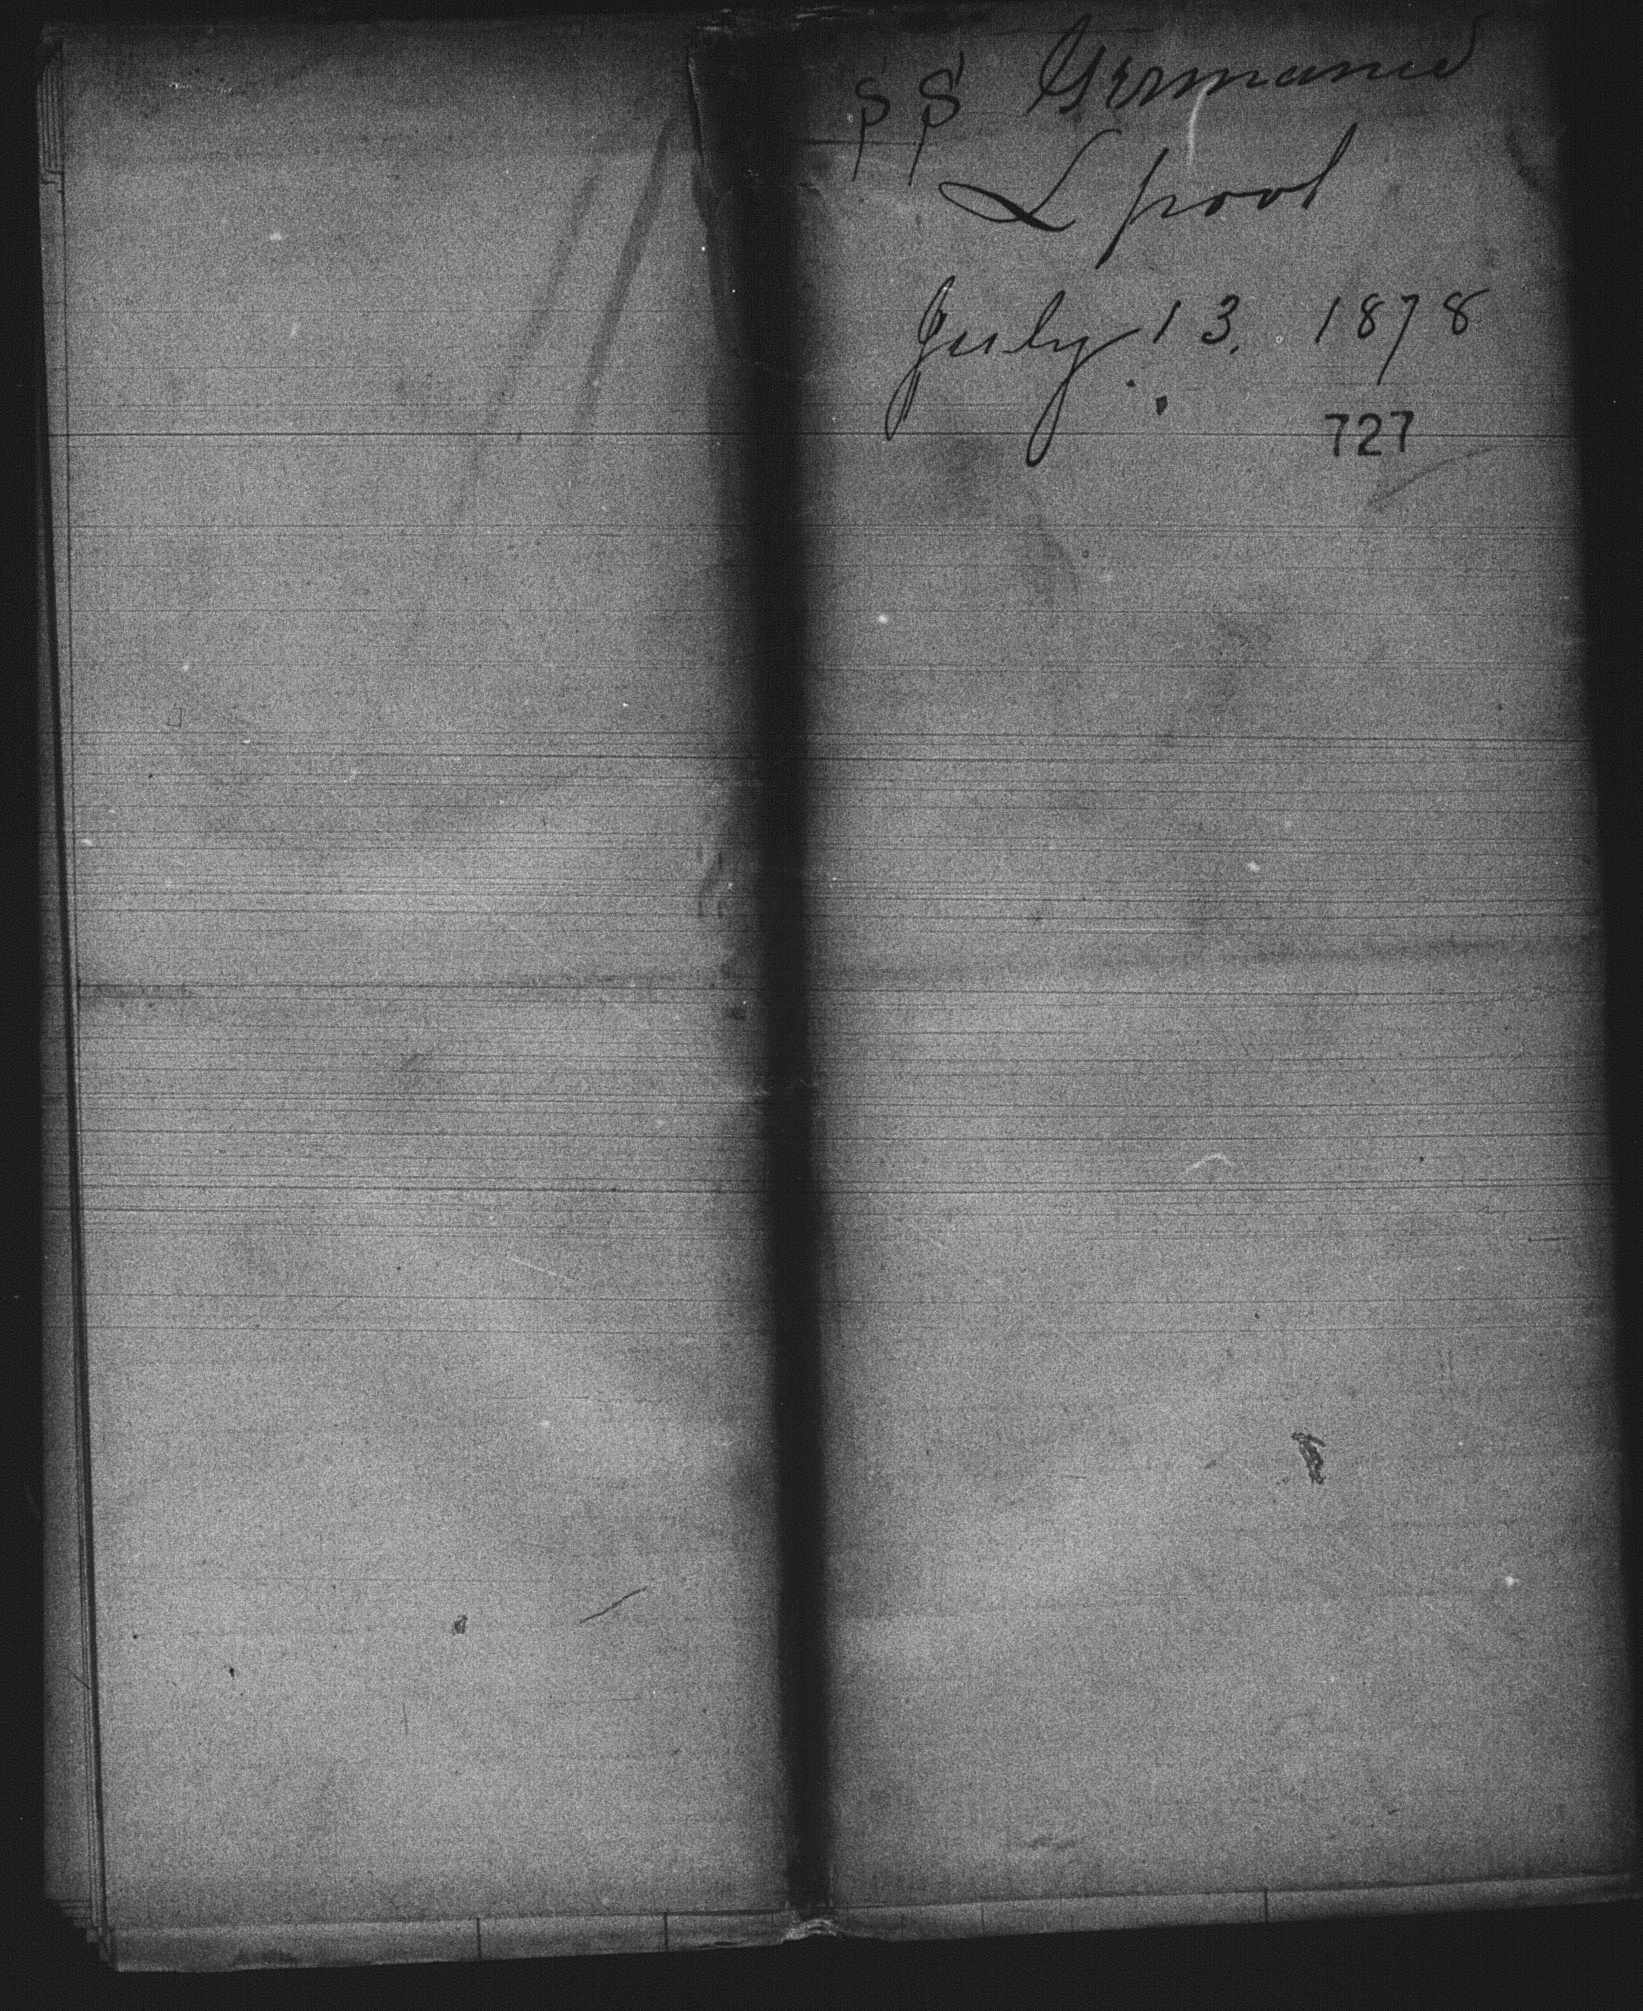 SS Germanic
L pool
July 13. 1878
727